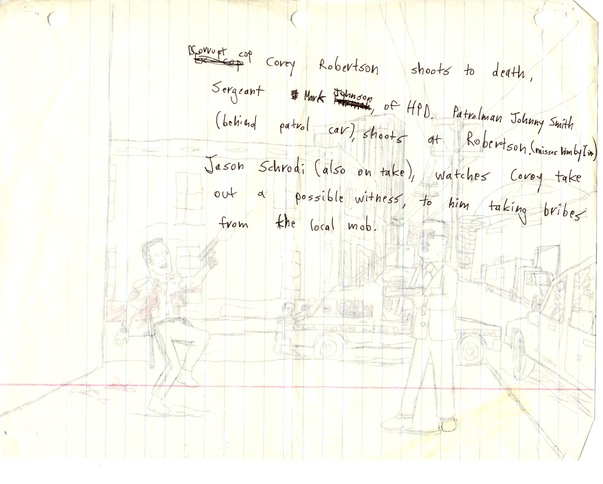 Corrupt cop Corey Robertson shoots to death,
Sergeant Mark Johnson, of HPD. Patrolman Johnny Smith
(behind patrol car), shoots at Robertson. (misses him by 1 in)
Jason Schrodi (also on take), watches Corey take
out a possible witness, to him taking bribes
from the local mob.